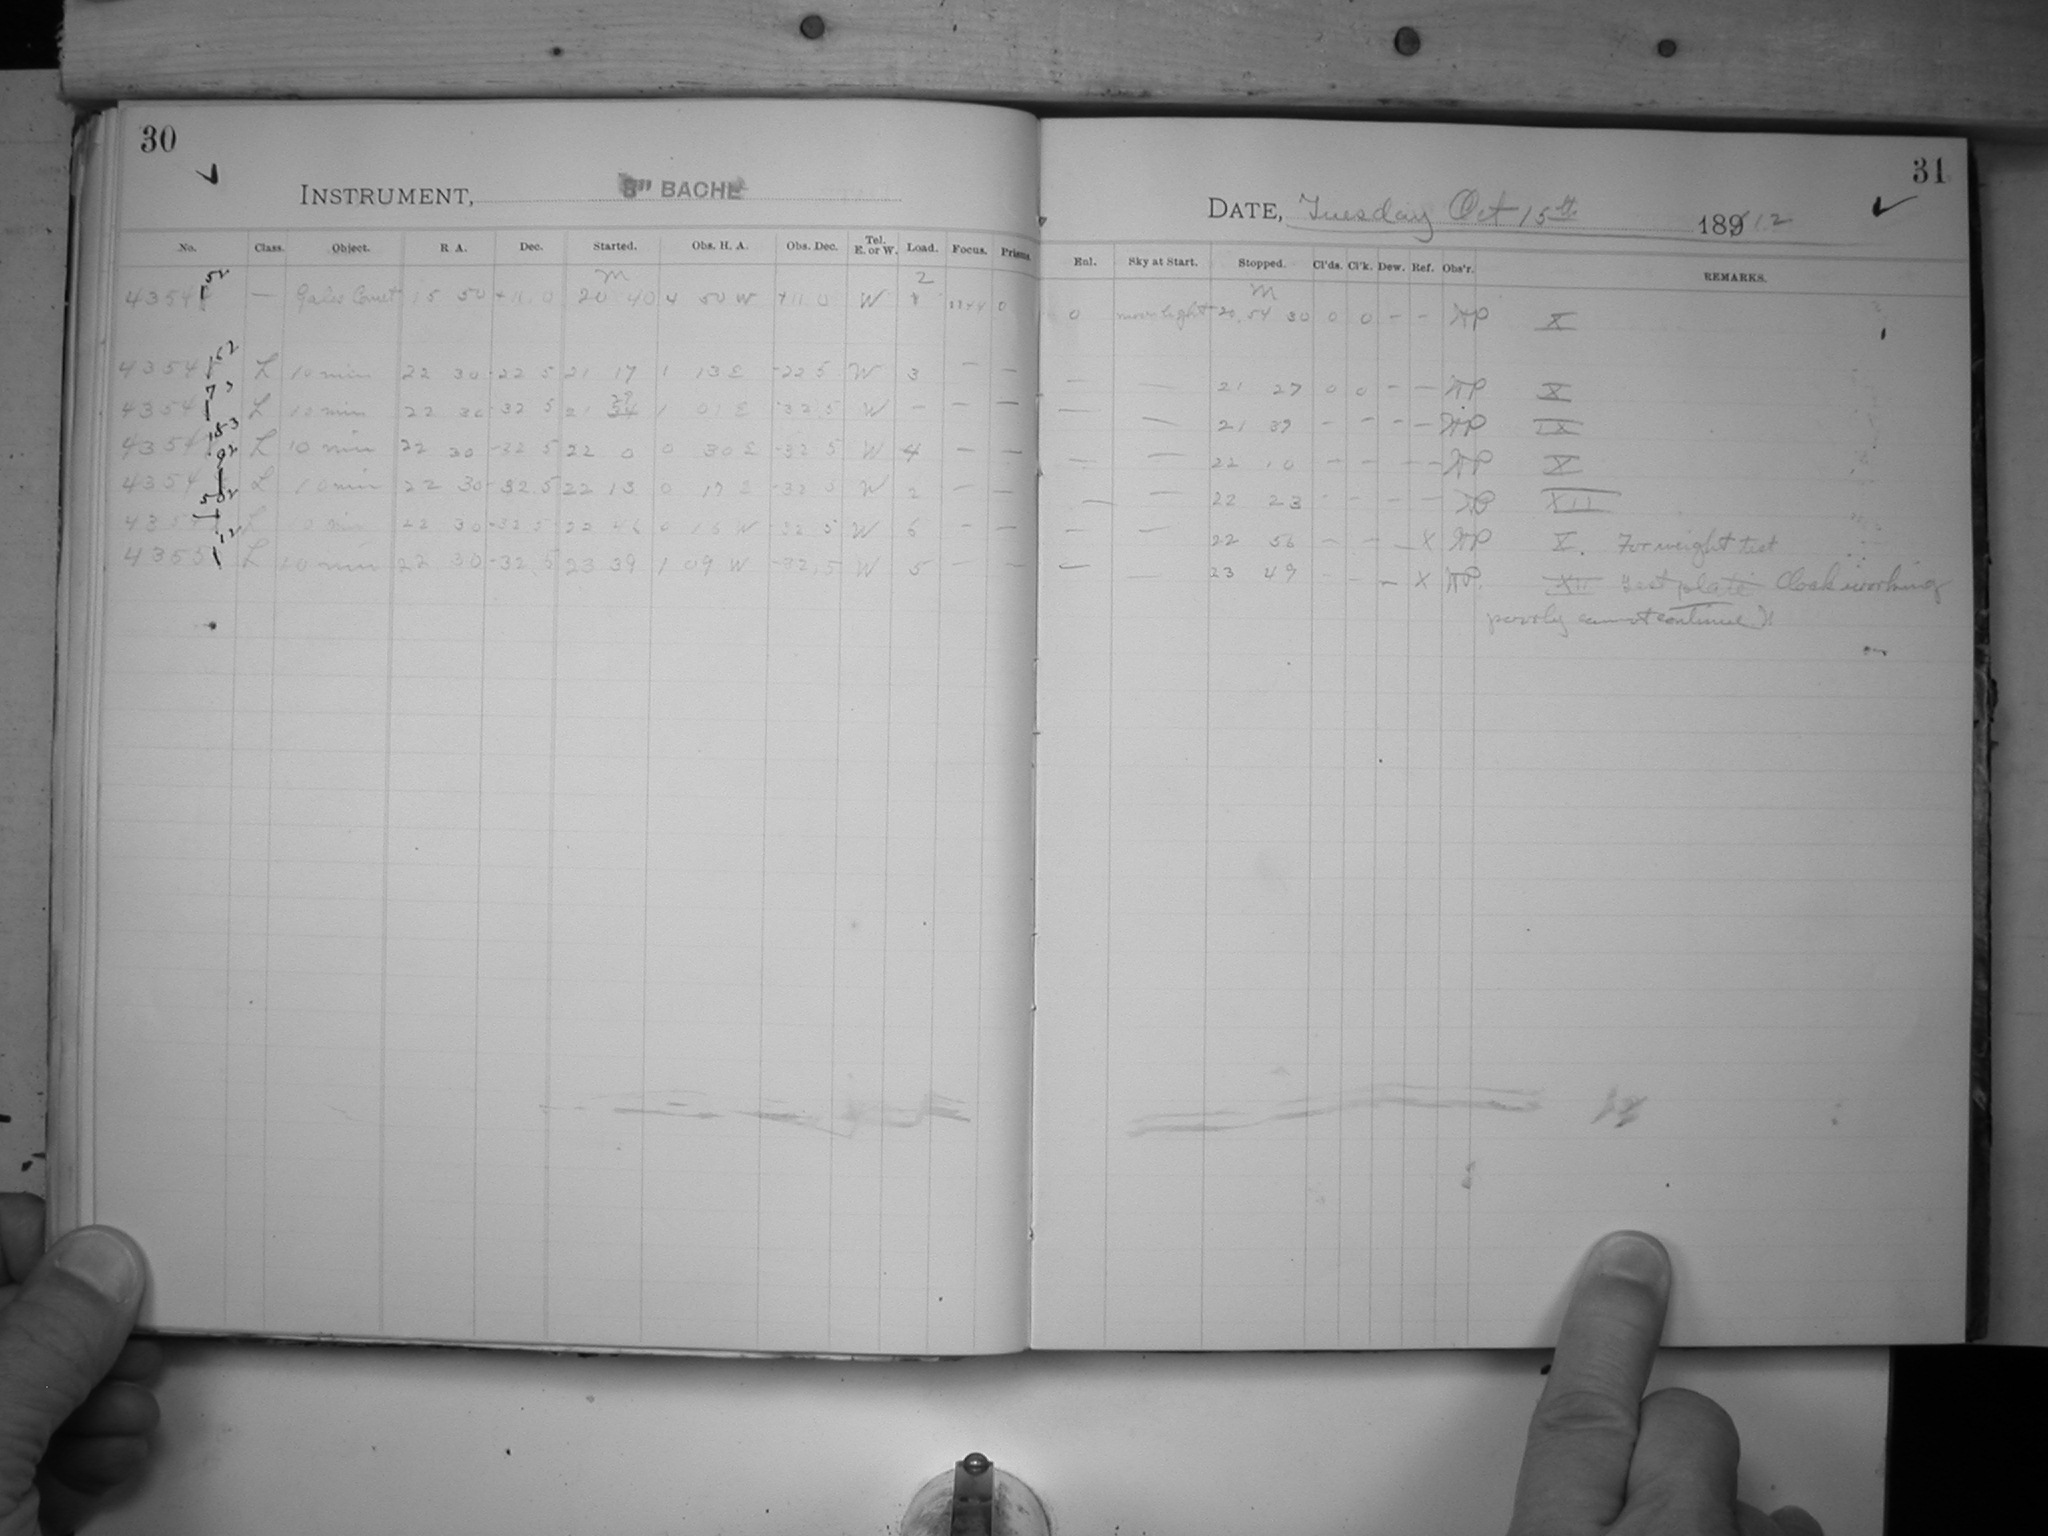 30
INSTRUMENT, 8" BACHE
No. Class. Object. R A. Dec. Started. Obs. H. A. Obs. Dec. Tel. E. or W. Load. Focus. Prisms.
m 2
4354 — Gales Comet 15 50 +11.0 20 40 4 50 W +11.0 W 0
4354 L 10 min 22 30 -22 5 21 17 1 13 E -22 5 W 3 — —
4354 L 10 min 22 30 -32 5 21 1 01 E -32.5 W — — —
4354 L 10 min 22 30 -32 5 22 0 0 30 E -32 5 W 4 — —
4354 L 10 min 22 30 -32.5 22 13 0 17 E -32 5 W 2 — —
L 10 min 22 30 -32 5 22 46 0 16 W -32 5 W 6 — —
4355 L 10 min 22 30 -32.5 23 39 1 09 W -32.5 W 5 — —
31
DATE, Tuesday Oct 15th 189 12
Enl. Sky at Start. Stopped. Cl'ds. Cl'k. Dew. Ref. Obs'r. REMARKS.
m
0 moonlight 20.54 30 0 0 — — X
— — 21 27 0 0 — — X
— — 21 39 — — — — IX
— — 22 10 — — — — X
— — 22 23 — — — — XII
— — 22 56 — — — X X. For weight test
— — 23 49 — — — X XII Test plate Clock working
poorly cannot continue